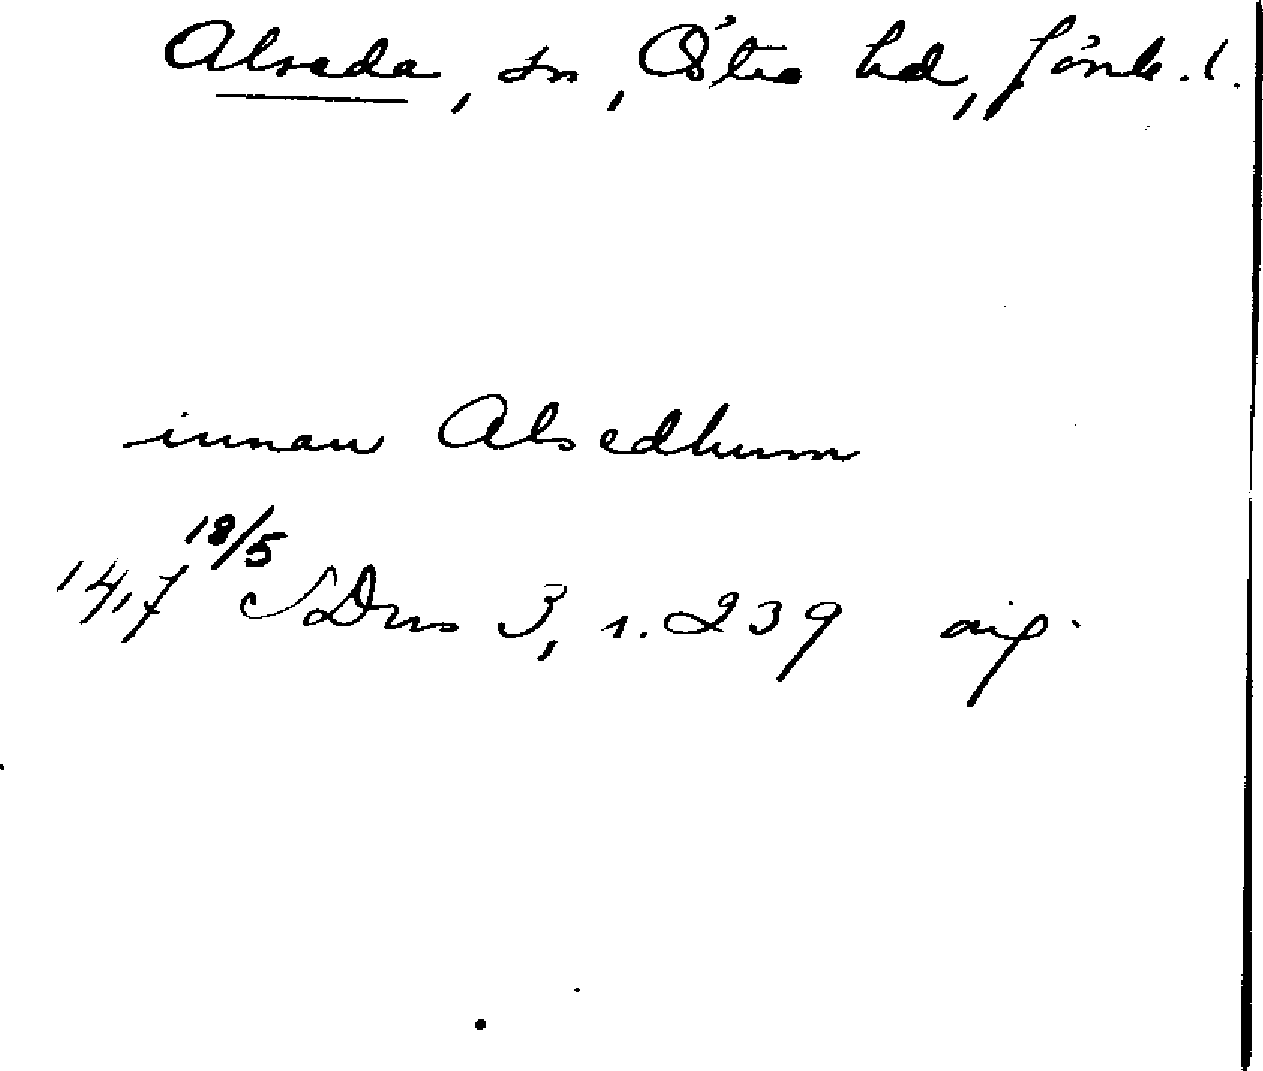 Alseda, sn, Östra hd, Jönk. l.
innan Alsedhum
1417 18/5 SDns 3, s. 239 or.